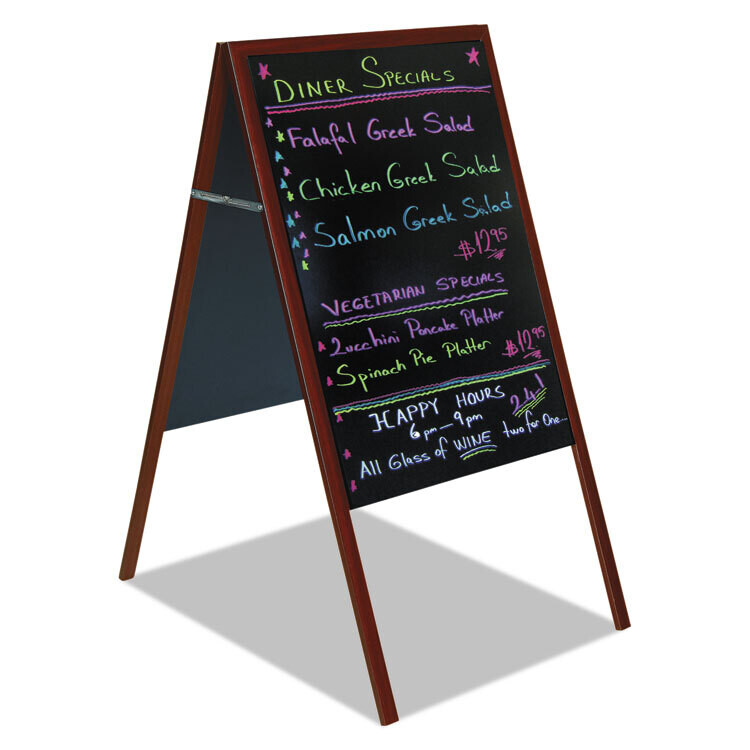 DINER SPECIALS
Falafal Greek Salad
Chicken Greek Salad
Salmon Greek Salad
$12.95
VEGETARIAN SPECIALS
Zucchini Pancake Platter
Spinach Pie Platter $12.95
HAPPY HOURS 241!
6pm—9pm
All Glass of WINE two for One...